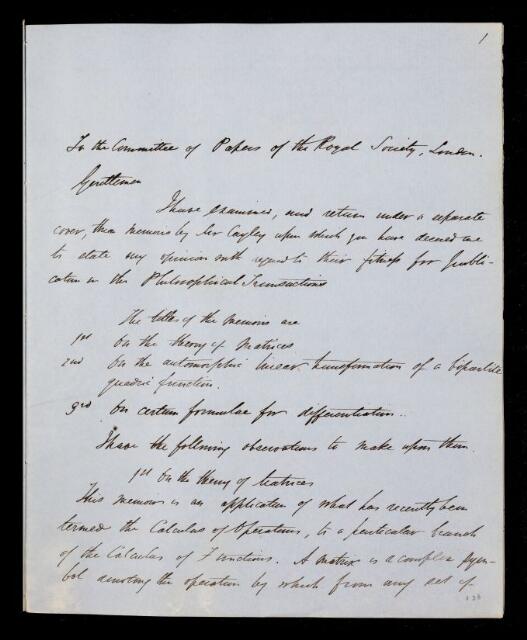 1
To the Committee of Papers of the Royal Society, London.
Gentlemen
I have examined, and return under a separate
cover, three memoirs by Mr Cayley upon which you have desired me
to state my opinion with regard to their fitness for Publi-
cation in the Philosophical Transactions
The titles of the memoirs are
1st On the theory of Matrices
2nd On the automorphic linear transformation of a bipartite
quadric function.
3rd On certain formulae for differentiation.
I have the following observations to make upon them.
1st On the theory of Matrices
This memoir is an application of what has recently been
termed the Calculus of Operations, to a particular branch
of the Calculus of Functions. A matrix is a complex sym-
bol denoting the operation by which from any set of